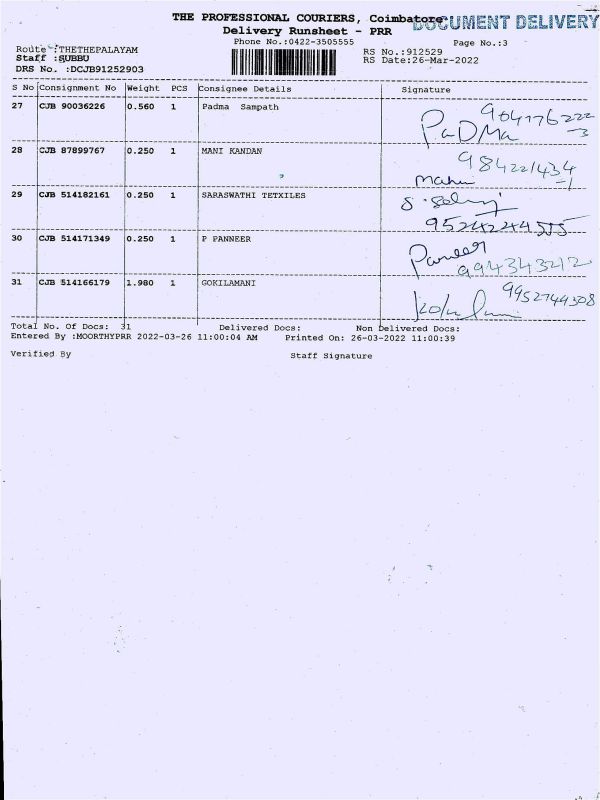 THE PROFESSIONAL COURIERS, Coimbatore
DOCUMENT DELIVERY
Delivery Runsheet - PRR
Phone No.:0422-3505555
Page No.:3
Route :THETHEPALAYAM
RS No.:912529
Staff :SUBBU
RS Date:26-Mar-2022
DRS No. :DCJB91252903
S No Consignment No Weight PCS Consignee Details Signature
27 CJB 90036226 0.560 1 Padma Sampath
PaDMa
28 CJB 87899767 0.250 1 MANI KANDAN
Mani
29 CJB 514182161 0.250 1 SARASWATHI TETXILES
30 CJB 514171349 0.250 1 P PANNEER
Paneer
9943435212
31 CJB 514166179 1.980 1 GOKILAMANI
9952744508
Total No. Of Docs: 31 Delivered Docs: Non Delivered Docs:
Entered By :MOORTHYPRR 2022-03-26 11:00:04 AM Printed On: 26-03-2022 11:00:39
Verified By Staff Signature